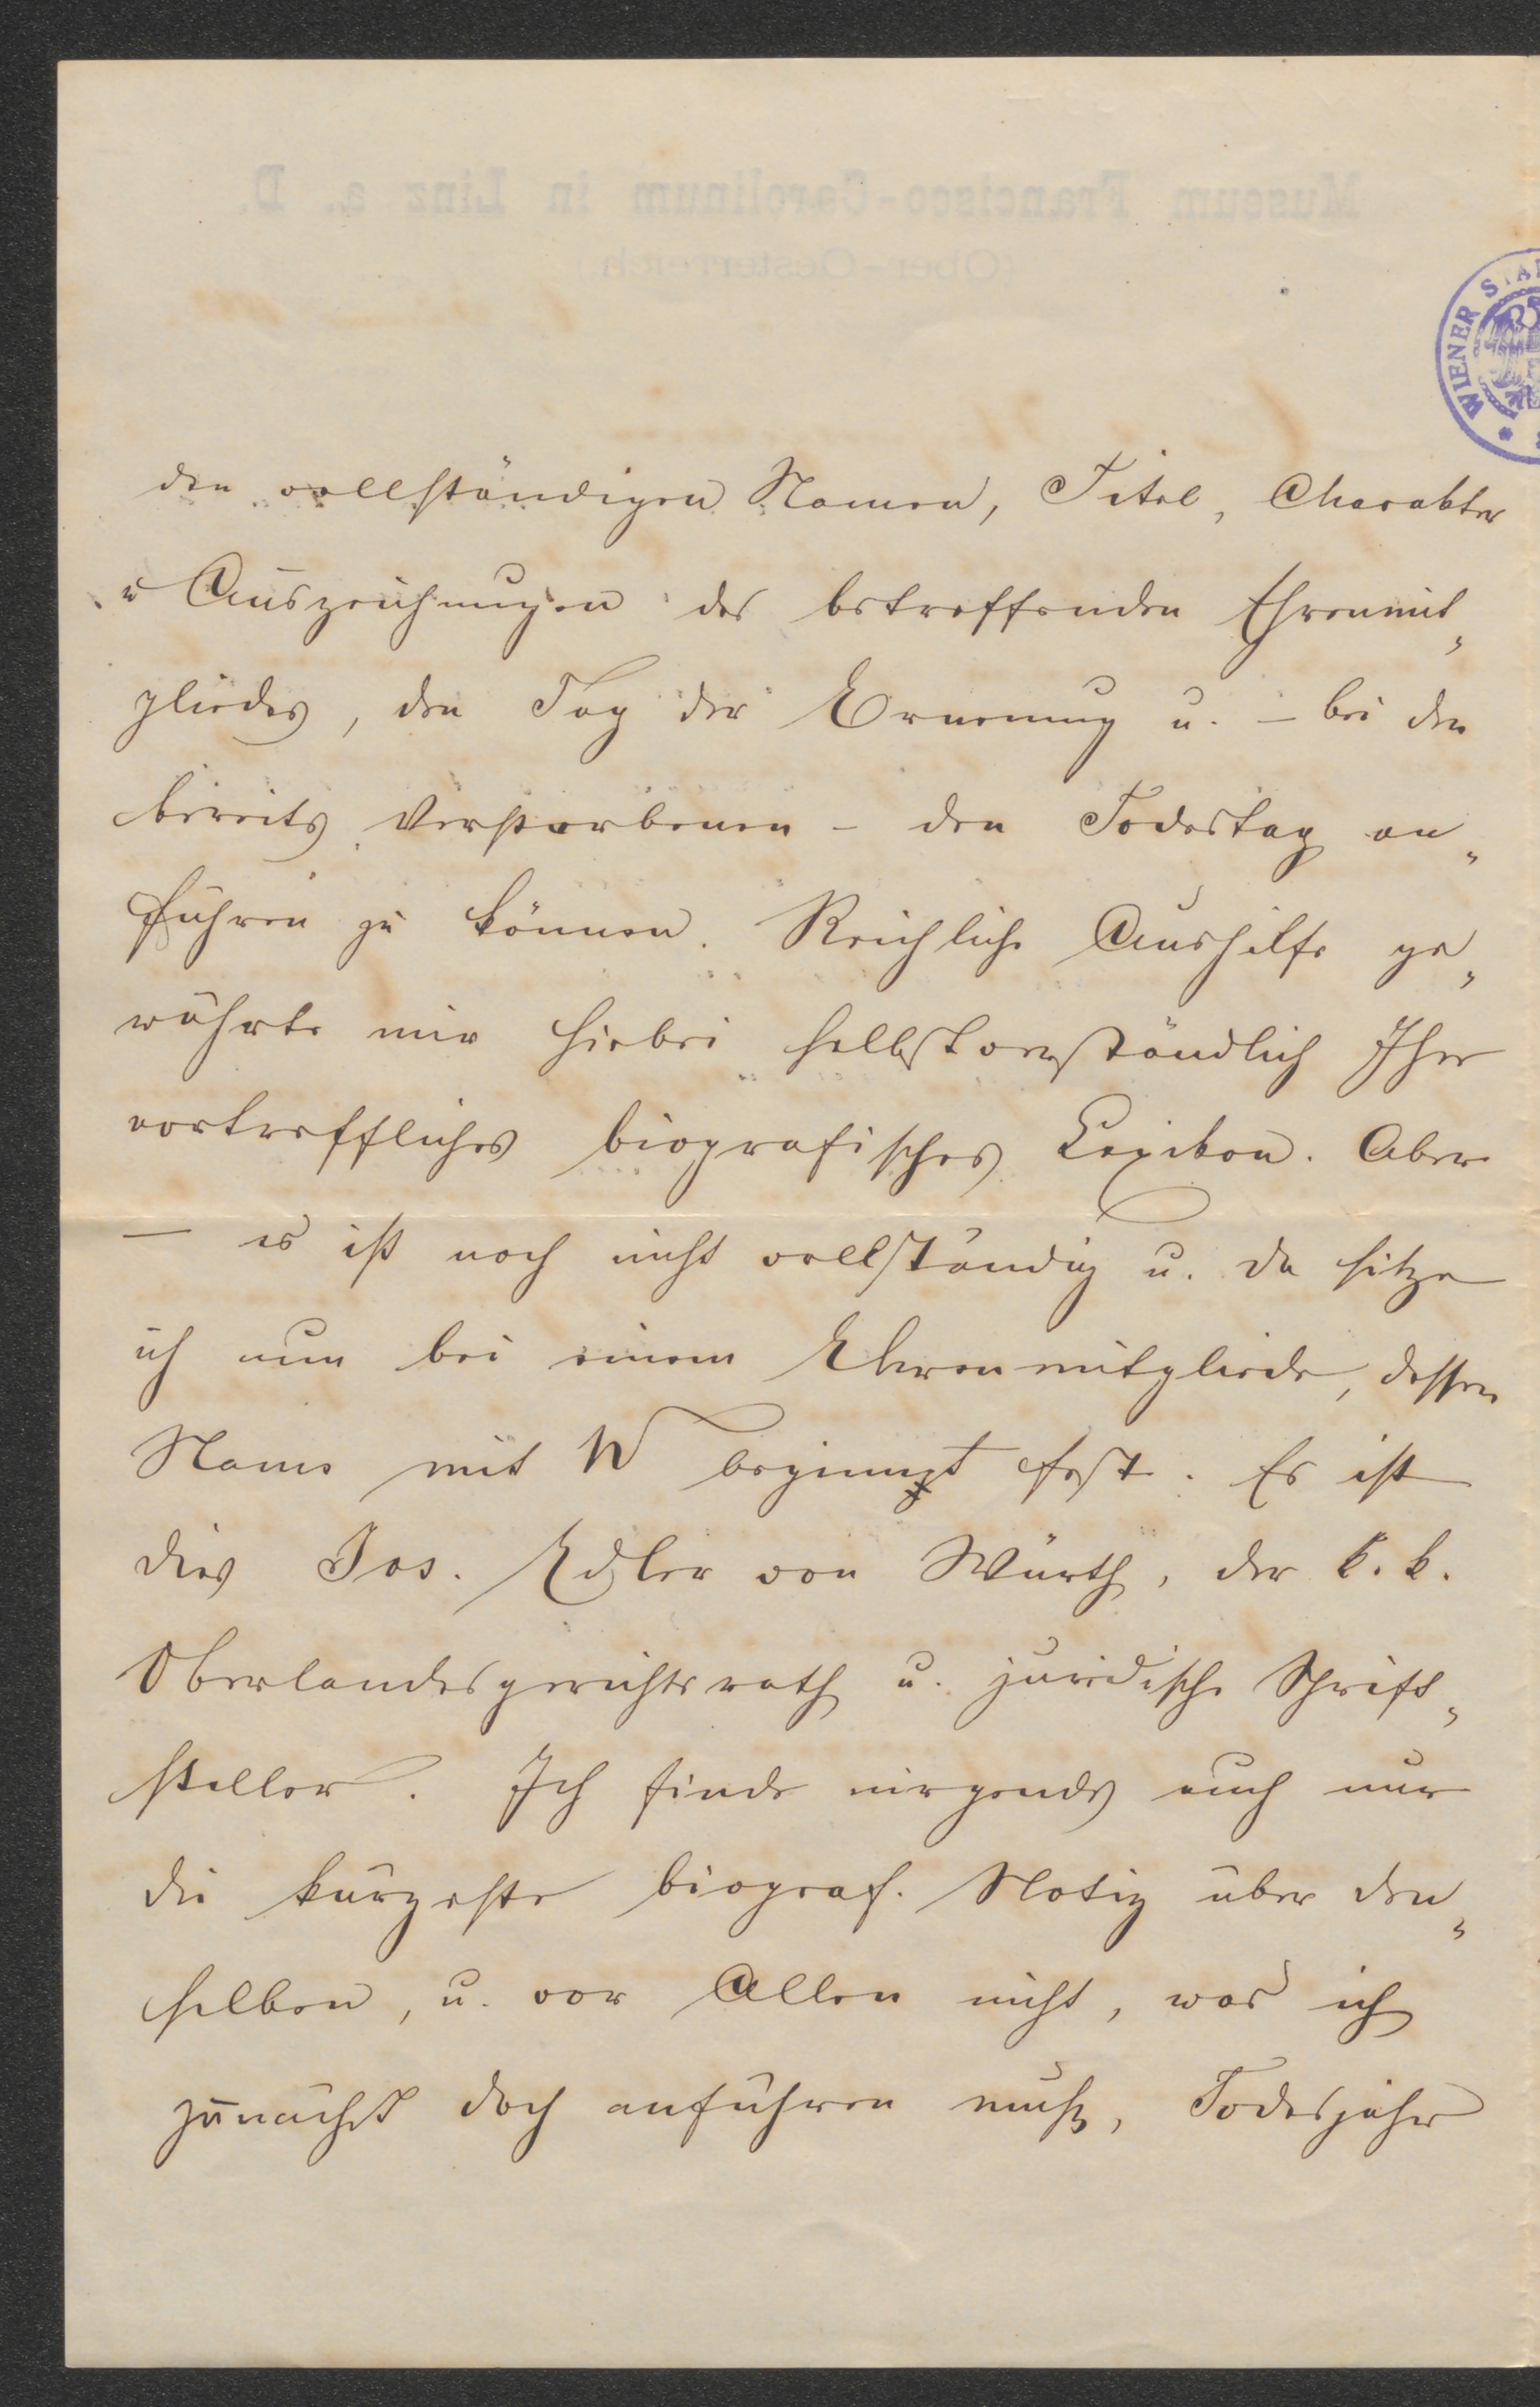 Museum Francisco-Carolinum in Linz a. D.
(Ober-Oesterreich)
WIENER STA
den vollständigen Namen, Titel, Charakter
u Auszeichnungen des betreffenden Ehrenmit„
gliedes, den Tag der Ernenung u. – bei den
bereits Verstorbenen – den Todestag an„
führen zu können. Reichliche Aushilfe ge„
währte mir hiebei selbstverständlich Ihr
vortreffliches biografisches Lexikon. Aber
– es ist noch nicht vollständig u. da sitze
ich nun bei einem Ehrenmitgliede, dessen
Name mit W beginnt fest. Es ist
dies Jos. Edler von Würth, der k. k.
Oberlandesgerichtsrath u. juridische Schrift„
steller. Ich finde nirgends auch nur
die kürzeste biograf. Notiz über den„
selben, u. vor Allen nicht, was ich
zunächst doch anführen muß, Todesjahr